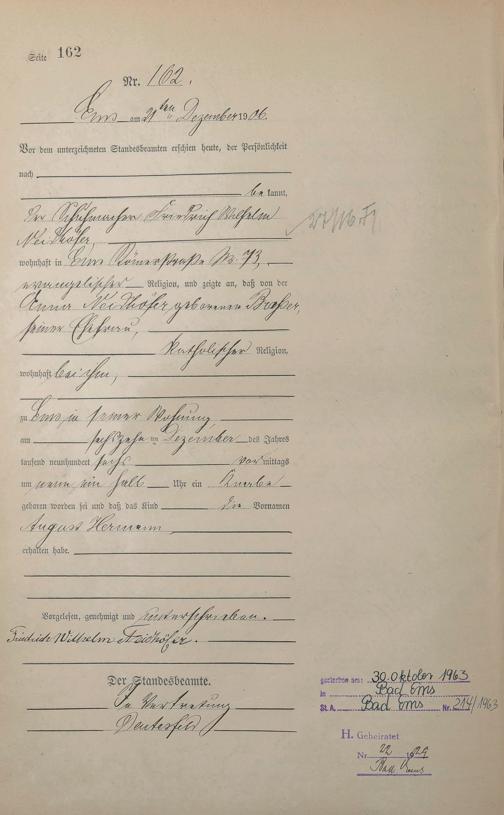 Seite 162
Nr. 162.
Ems am 21ten Dezember 1906.
Vor dem unterzeichneten Standesbeamten erschien heute, der Persönlichkeit
nach
bekannt,
der Schuhmacher Friedrich Wilhelm
Neidhöfer,
wohnhaft in Ems Römerstraße No 73,
evangelischer Religion, und zeigte an, daß von der
Anna Neidhöfer, geborenen
seiner Ehefrau,
katholischer Religion,
wohnhaft bei ihm,
zu Ems, in seiner Wohnung
am sechszehn ten Dezember des Jahres
tausend neunhundert sechs vor mittags
um neun ein halb Uhr ein Knabe
geboren worden sei und daß das Kind die Vornamen
August Hermann
erhalten habe.
Vorgelesen, genehmigt und unterschrieben.
Friedrich Wilhelm Neidhöfer.
Der Standesbeamte.
In Vertretung
gestorben am: 30. Oktober 1963
in Bad Ems
St. A. Bad Ems Nr. 214/1963
H. Geheiratet
Nr. 22 1929
Bad Ems